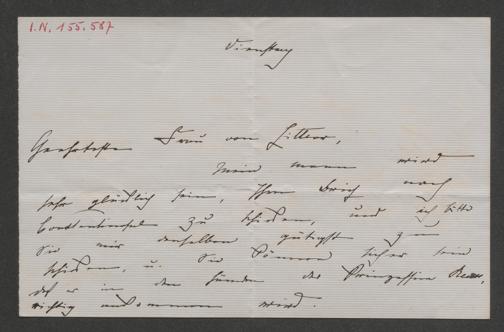 I.N. 155.587
Dienstag
Geehrteste Frau von Littrow,
Mein Mann wird
sehr glücklich sein, Ihren Brief nach
Constantinopel zu schicken, und ich bitte
Sie mir denselben gütigst zu
schicken, u. Sie können sicher sein
daß er in den Händen der Prinzessin
richtig ankommen wird.